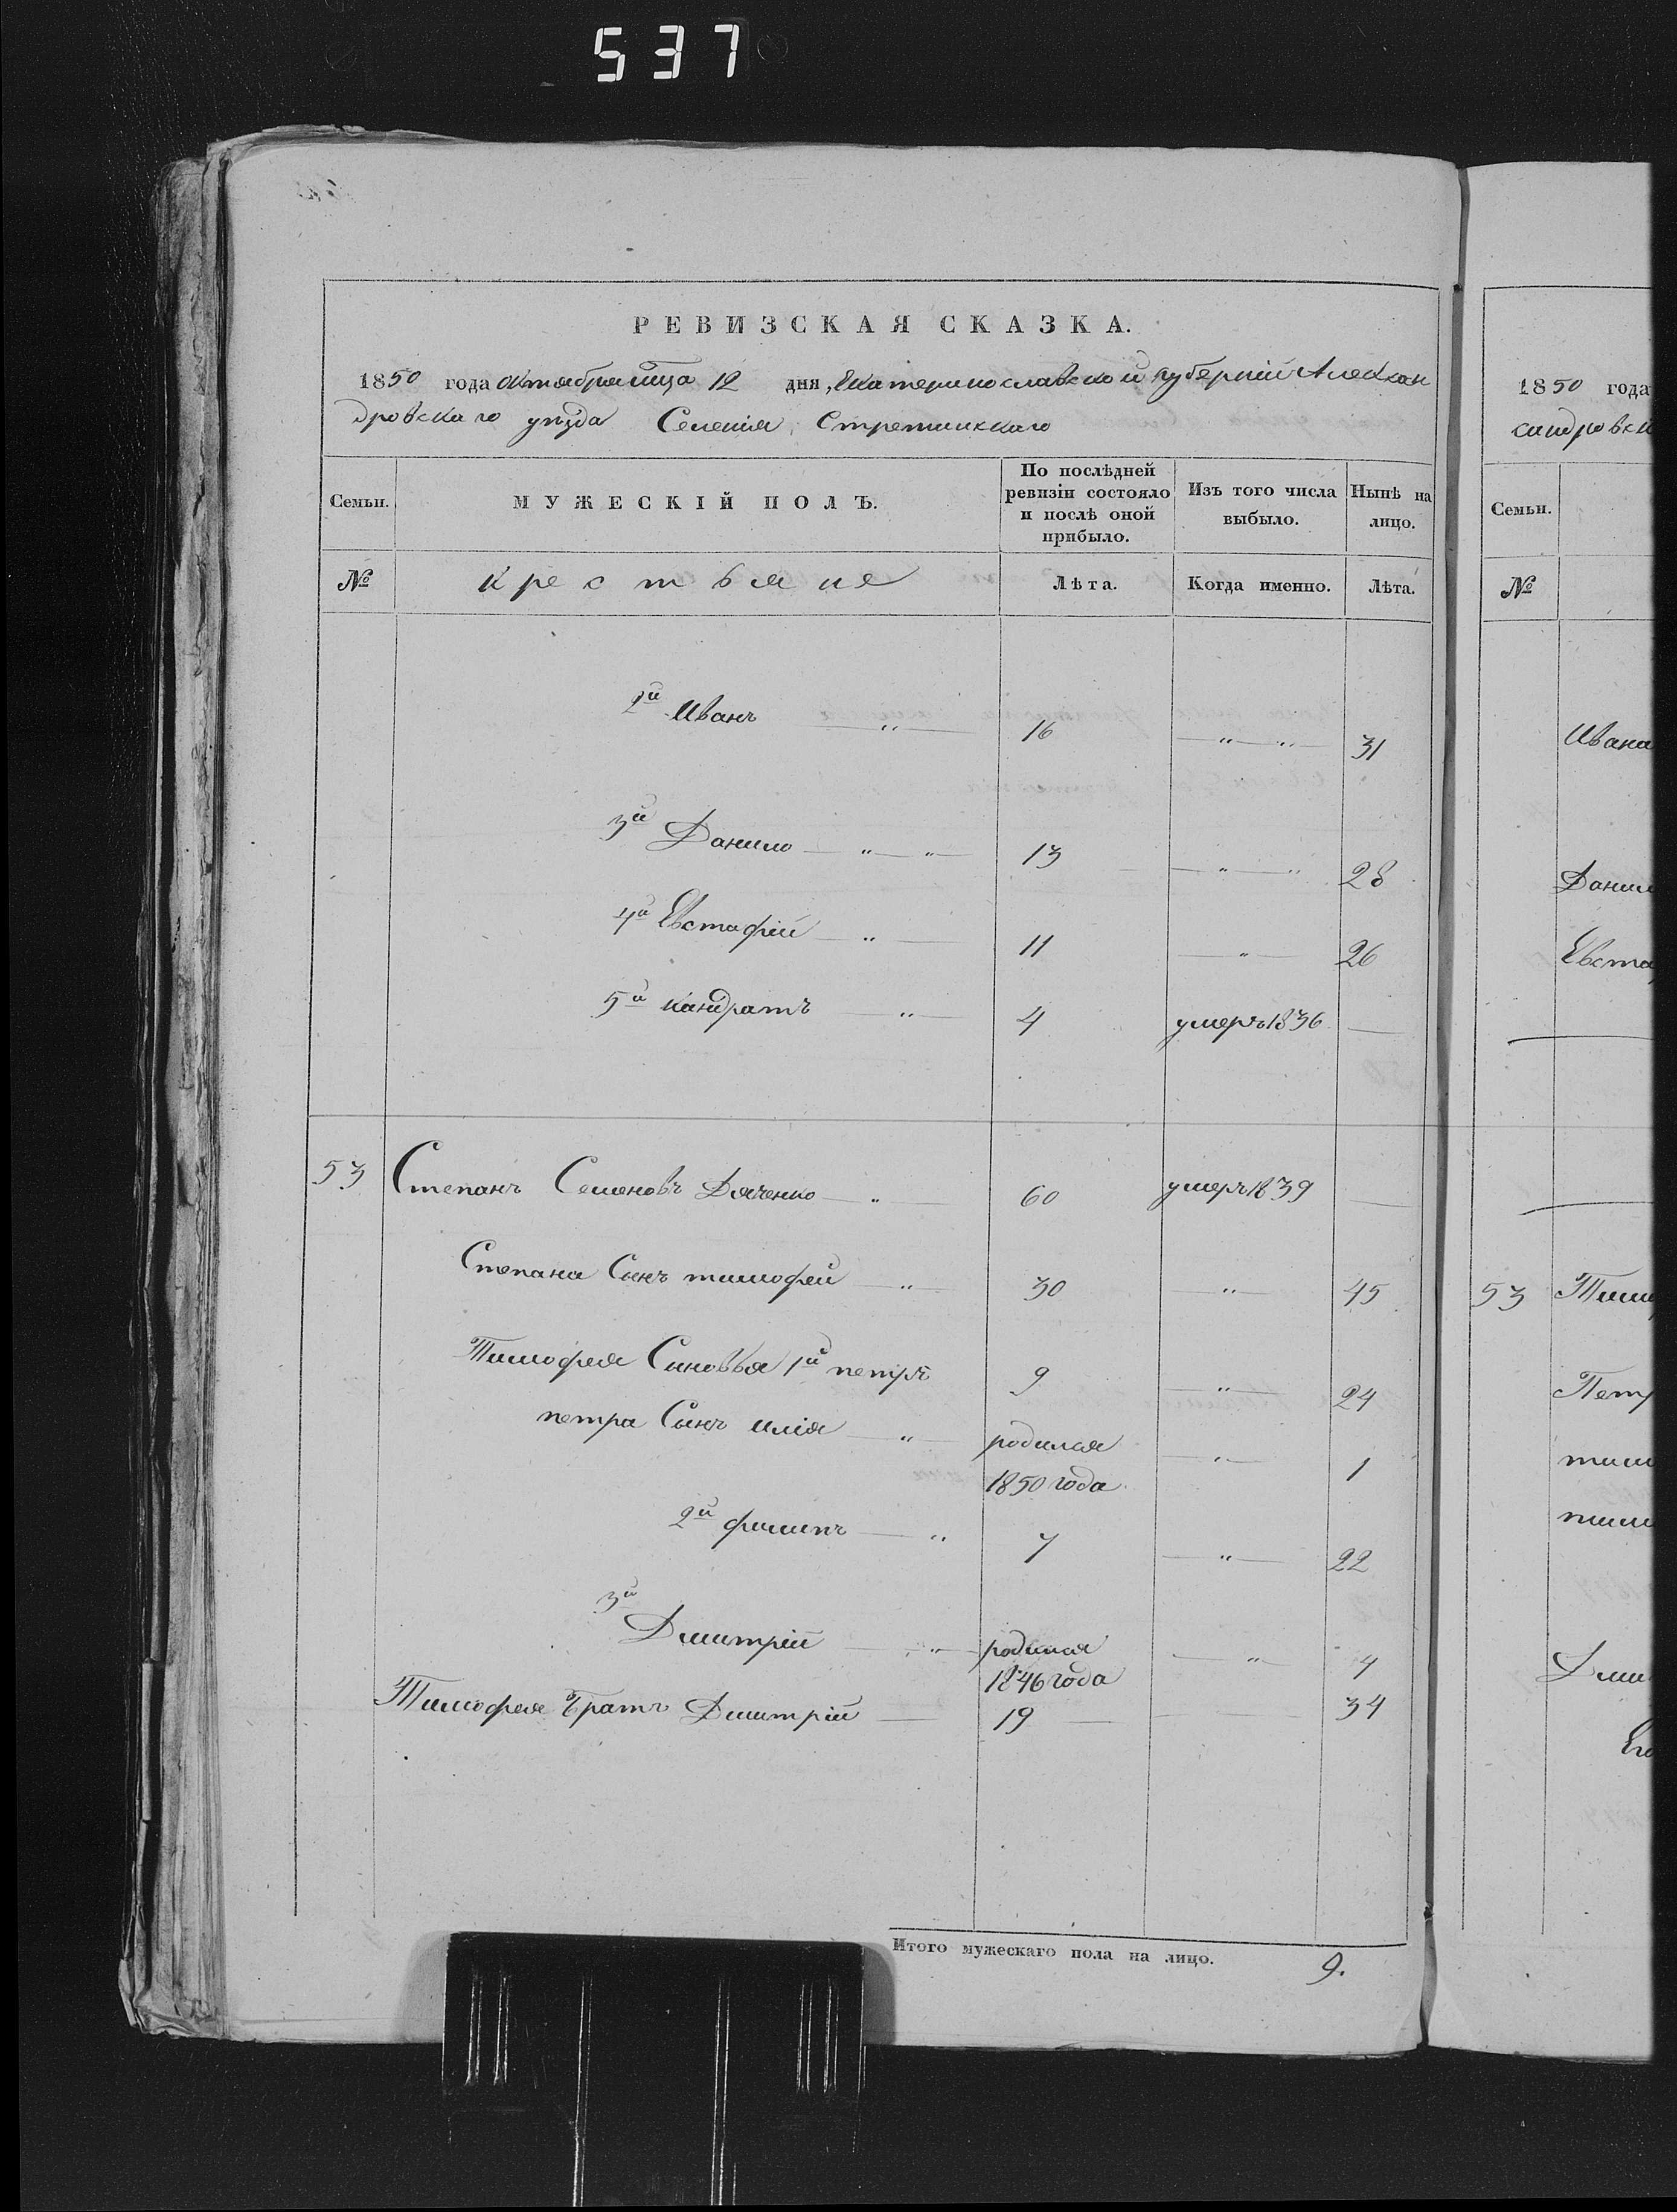 537
РЕВИЗСКАЯ СКАЗКА.
1850 года октября мца 12 дня, Екатеринославской губерніи Алексан
дровскаго уѣзда Селенія Стретинскаго
Семьи. МУЖЕСКІЙ ПОЛЪ. По послѣдней ревизіи состояло и послѣ оной прибыло. Изъ того числа выбыло. Нынѣ на лицо.
№ крестьяне Лѣта. Когда именно. Лѣта.
2й Иванъ — „ — 16 — „ — „ — 31
3й Данило — „ — „ — 13 — „ — „ 28
4й Евстафій — „ — 11 — „ — 26
5й кандратъ „ — 4 умеръ 1836 —
53 Степанъ Семеновъ Дяченко — „ — 60 умеръ 1839 —
Степана Сынъ тимофей — „ — 30 — „ — 45
Тимофея Сыновья 1й петръ 9 — „ — 24
петра Сынъ илія — „ — родился — „ — 1
1850 года
2й филипъ — „ 7 — „ — 22
3й
Дмитрій — „ — родился — „ — 4
1846 года
Тимофея Братъ Дмитрій — 19 — — 34
Итого мужескаго пола на лицо. 9.
1850 года
сандровск
Семьи.
№
Ивана
Данил
Евста
53 Тимо
Петр
тим
тим
Дми
Его